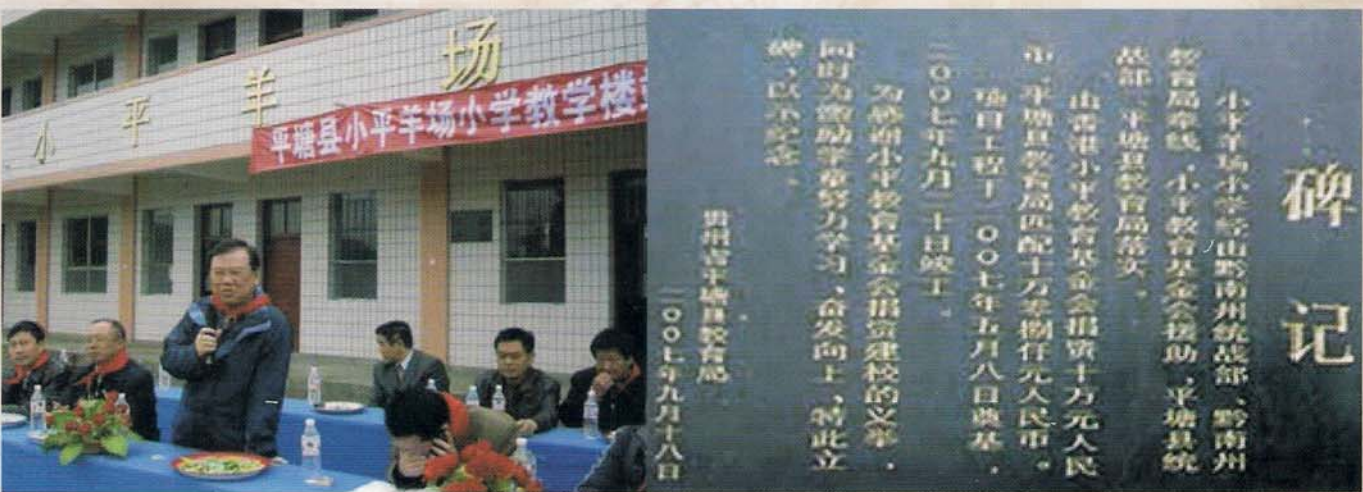 小平羊场
平塘县小平羊场小学教学楼
碑记
小平羊场小学经由黔南州统战部、黔南州
教育局牵线，小平教育基金会援助，平塘县统
战部、平塘县教育局落实。
由香港小平教育基金会捐资十万元人民
币，平塘县教育局匹配十万捌仟元人民币。
项目工程于二〇〇七年五月八日奠基，
二〇〇七年九月二十日竣工。
为感谢小平教育基金会捐资建校的义举，
同时为激励学童努力学习、奋发向上，特此立
碑，以示纪念。
贵州省平塘县教育局
二〇〇七年九月十八日